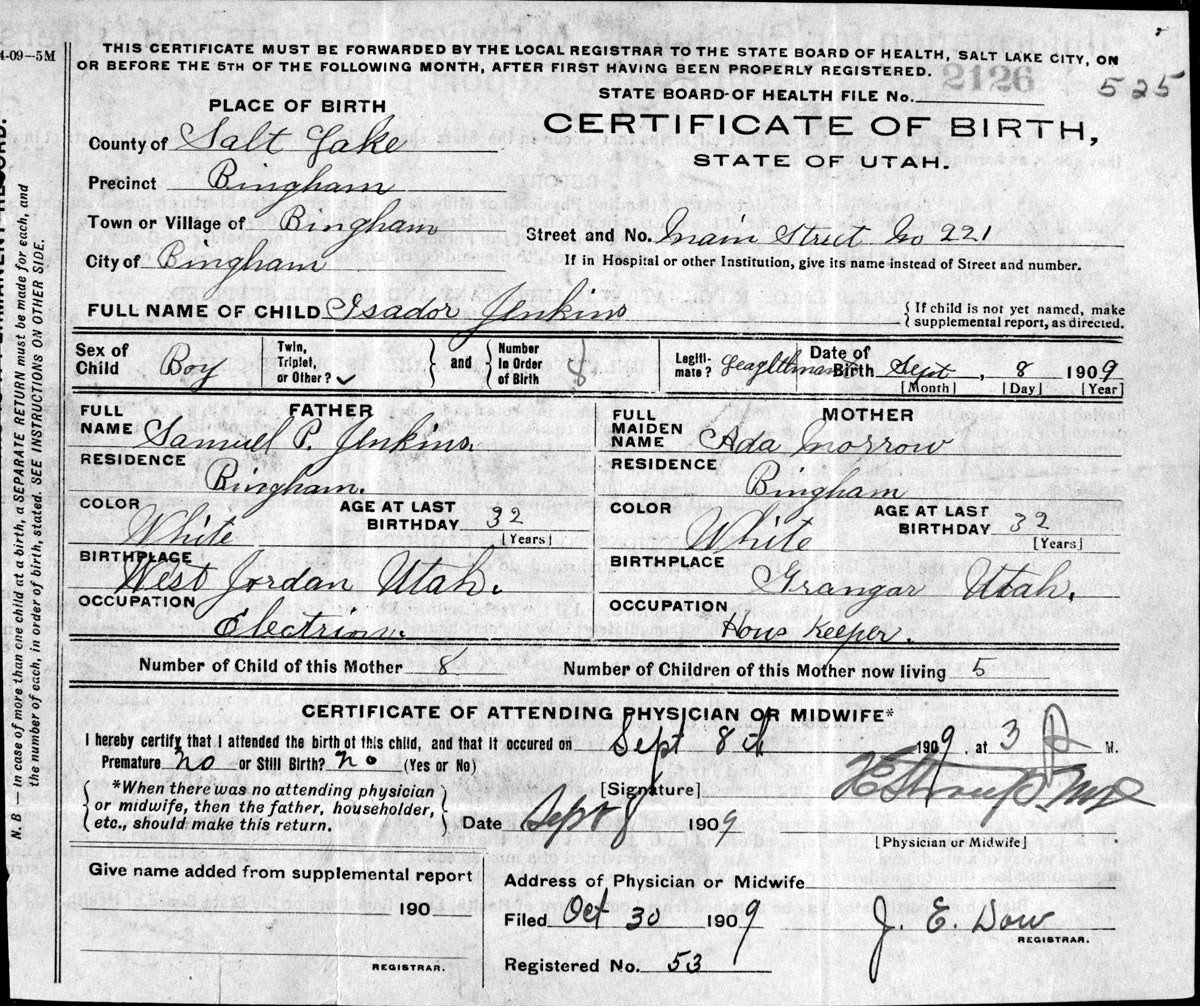 4-09—5M
THIS CERTIFICATE MUST BE FORWARDED BY THE LOCAL REGISTRAR TO THE STATE BOARD OF HEALTH, SALT LAKE CITY, ON
OR BEFORE THE 5TH OF THE FOLLOWING MONTH, AFTER FIRST HAVING BEEN PROPERLY REGISTERED.
STATE BOARD OF HEALTH FILE No. 2126 525
PLACE OF BIRTH
CERTIFICATE OF BIRTH,
STATE OF UTAH.
County of Salt Lake
Precinct Bingham
Town or Village of Bingham
Street and No. Main Street No 221
City of Bingham
If in Hospital or other Institution, give its name instead of Street and number.
FULL NAME OF CHILD Isador Jenkins { If child is not yet named, make supplemental report, as directed.
Sex of Child Boy Twin, Triplet, or Other? } and { Number in Order of Birth 8 Legitimate? Date of Birth Sept, 8 1909
[Month] [Day] [Year]
FATHER MOTHER
FULL NAME Samuel P. Jenkins. FULL MAIDEN NAME Ada Morrow
RESIDENCE Bingham. RESIDENCE Bingham
COLOR White AGE AT LAST BIRTHDAY 32 [Years] COLOR White AGE AT LAST BIRTHDAY 32 [Years]
BIRTHPLACE West Jordan Utah. BIRTHPLACE Grangar Utah.
OCCUPATION Electrion. OCCUPATION Hous Keeper.
Number of Child of this Mother 8 Number of Children of this Mother now living 5
CERTIFICATE OF ATTENDING PHYSICIAN OR MIDWIFE*
I hereby certify that I attended the birth of this child, and that it occured on Sept 8th 1909, at 3 P M.
Premature no or Still Birth? no (Yes or No)
[Signature]
{ *When there was no attending physician
or midwife, then the father, householder,
etc., should make this return. }
Date Sept 8 1909
[Physician or Midwife]
Give name added from supplemental report
190
REGISTRAR.
Address of Physician or Midwife
Filed Oct 30 1909 J. E. Dow
REGISTRAR.
Registered No. 53
N. B.— In case of more than one child at a birth, a SEPARATE RETURN must be made for each, and
the number of each, in order of birth, stated. SEE INSTRUCTIONS ON OTHER SIDE.